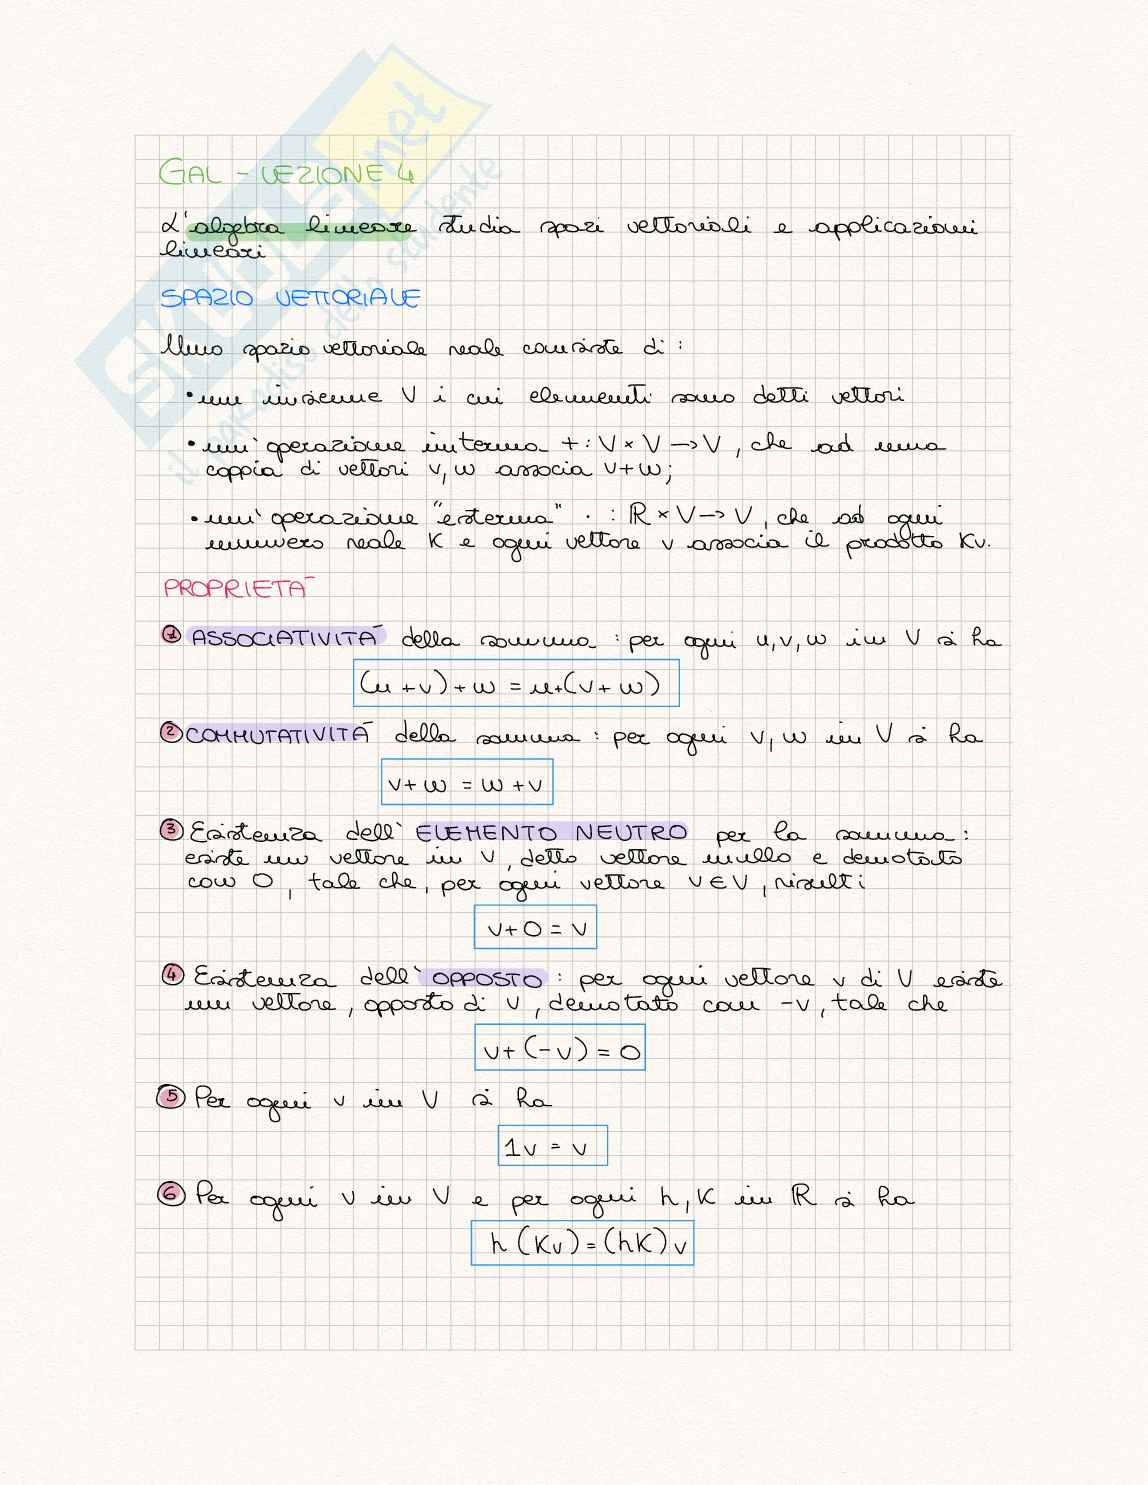 GAL - LEZIONE 4
L'algebra lineare studia spazi vettoriali e applicazioni
lineari
SPAZIO VETTORIALE
Uno spazio vettoriale reale consiste di :
• un insieme V i cui elementi sono detti vettori
• un'operazione interna + : V × V → V , che ad una
coppia di vettori v, w associa v + w ;
• un'operazione "esterna" · : ℝ × V → V , che ad ogni
numero reale K e ogni vettore v associa il prodotto Kv.
PROPRIETÀ
1 ASSOCIATIVITÀ della somma : per ogni u, v, w in V si ha
(u + v) + w = u + (v + w)
2 COMMUTATIVITÀ della somma : per ogni v, w in V si ha
v + w = w + v
3 Esistenza dell' ELEMENTO NEUTRO per la somma :
esiste un vettore in V, detto vettore nullo e denotato
con 0 , tale che, per ogni vettore v ∈ V , risulti
v + 0 = v
4 Esistenza dell' OPPOSTO : per ogni vettore v di V esiste
un vettore, opposto di v , denotato con -v , tale che
v + (-v) = 0
5 Per ogni v in V si ha
1v = v
6 Per ogni v in V e per ogni h, K in ℝ si ha
h (Kv) = (hK) v
SKUOLA.net
il paradiso dello studente